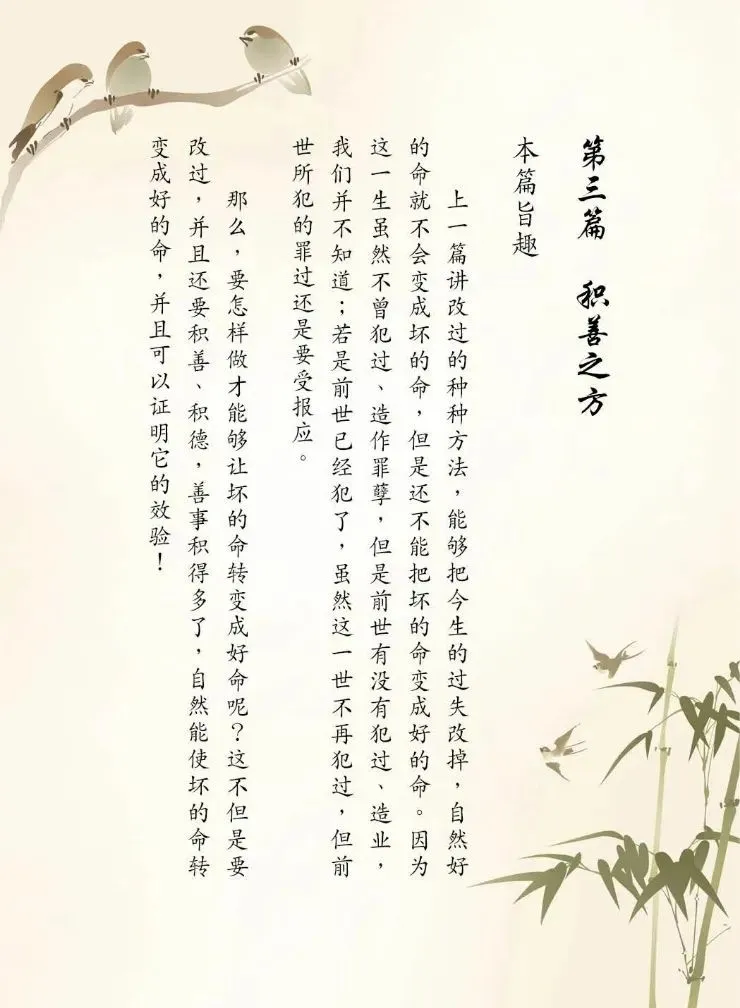 第三篇　积善之方
本篇旨趣
上一篇讲改过的种种方法，能够把今生的过失改掉，自然好
的命就不会变成坏的命，但是还不能把坏的命变成好的命。因为
这一生虽然不曾犯过、造作罪孽，但是前世有没有犯过、造业，
我们并不知道；若是前世已经犯了，虽然这一世不再犯过，但前
世所犯的罪过还是要受报应。
那么，要怎样做才能够让坏的命转变成好命呢？这不但是要
改过，并且还要积善、积德，善事积得多了，自然能使坏的命转
变成好的命，并且可以证明它的效验！